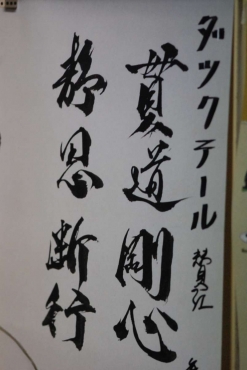 ダックテール
貫道剛心
静思断行